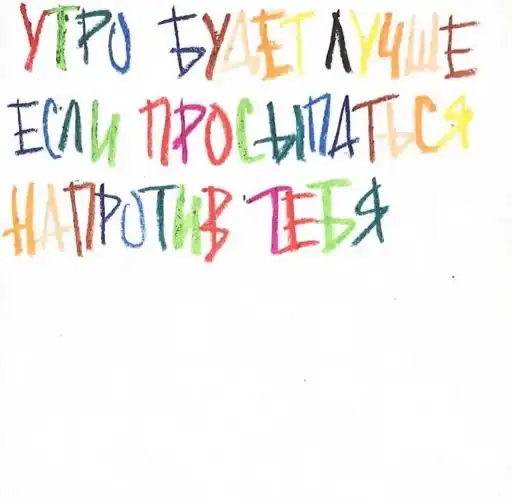 УТРО БУДЕТ ЛУЧШЕ
ЕСЛИ ПРОСЫПАТЬСЯ
НАПРОТИВ ТЕБЯ